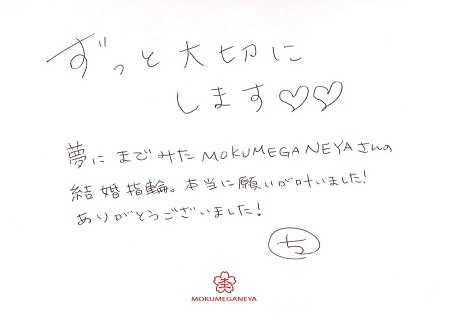 ずっと大切に
します♡♡
夢にまでみたMOKUMEGANEYAさんの
結婚指輪。本当に願いが叶いました!
ありがとうございました!
ち
MOKUMEGANEYA